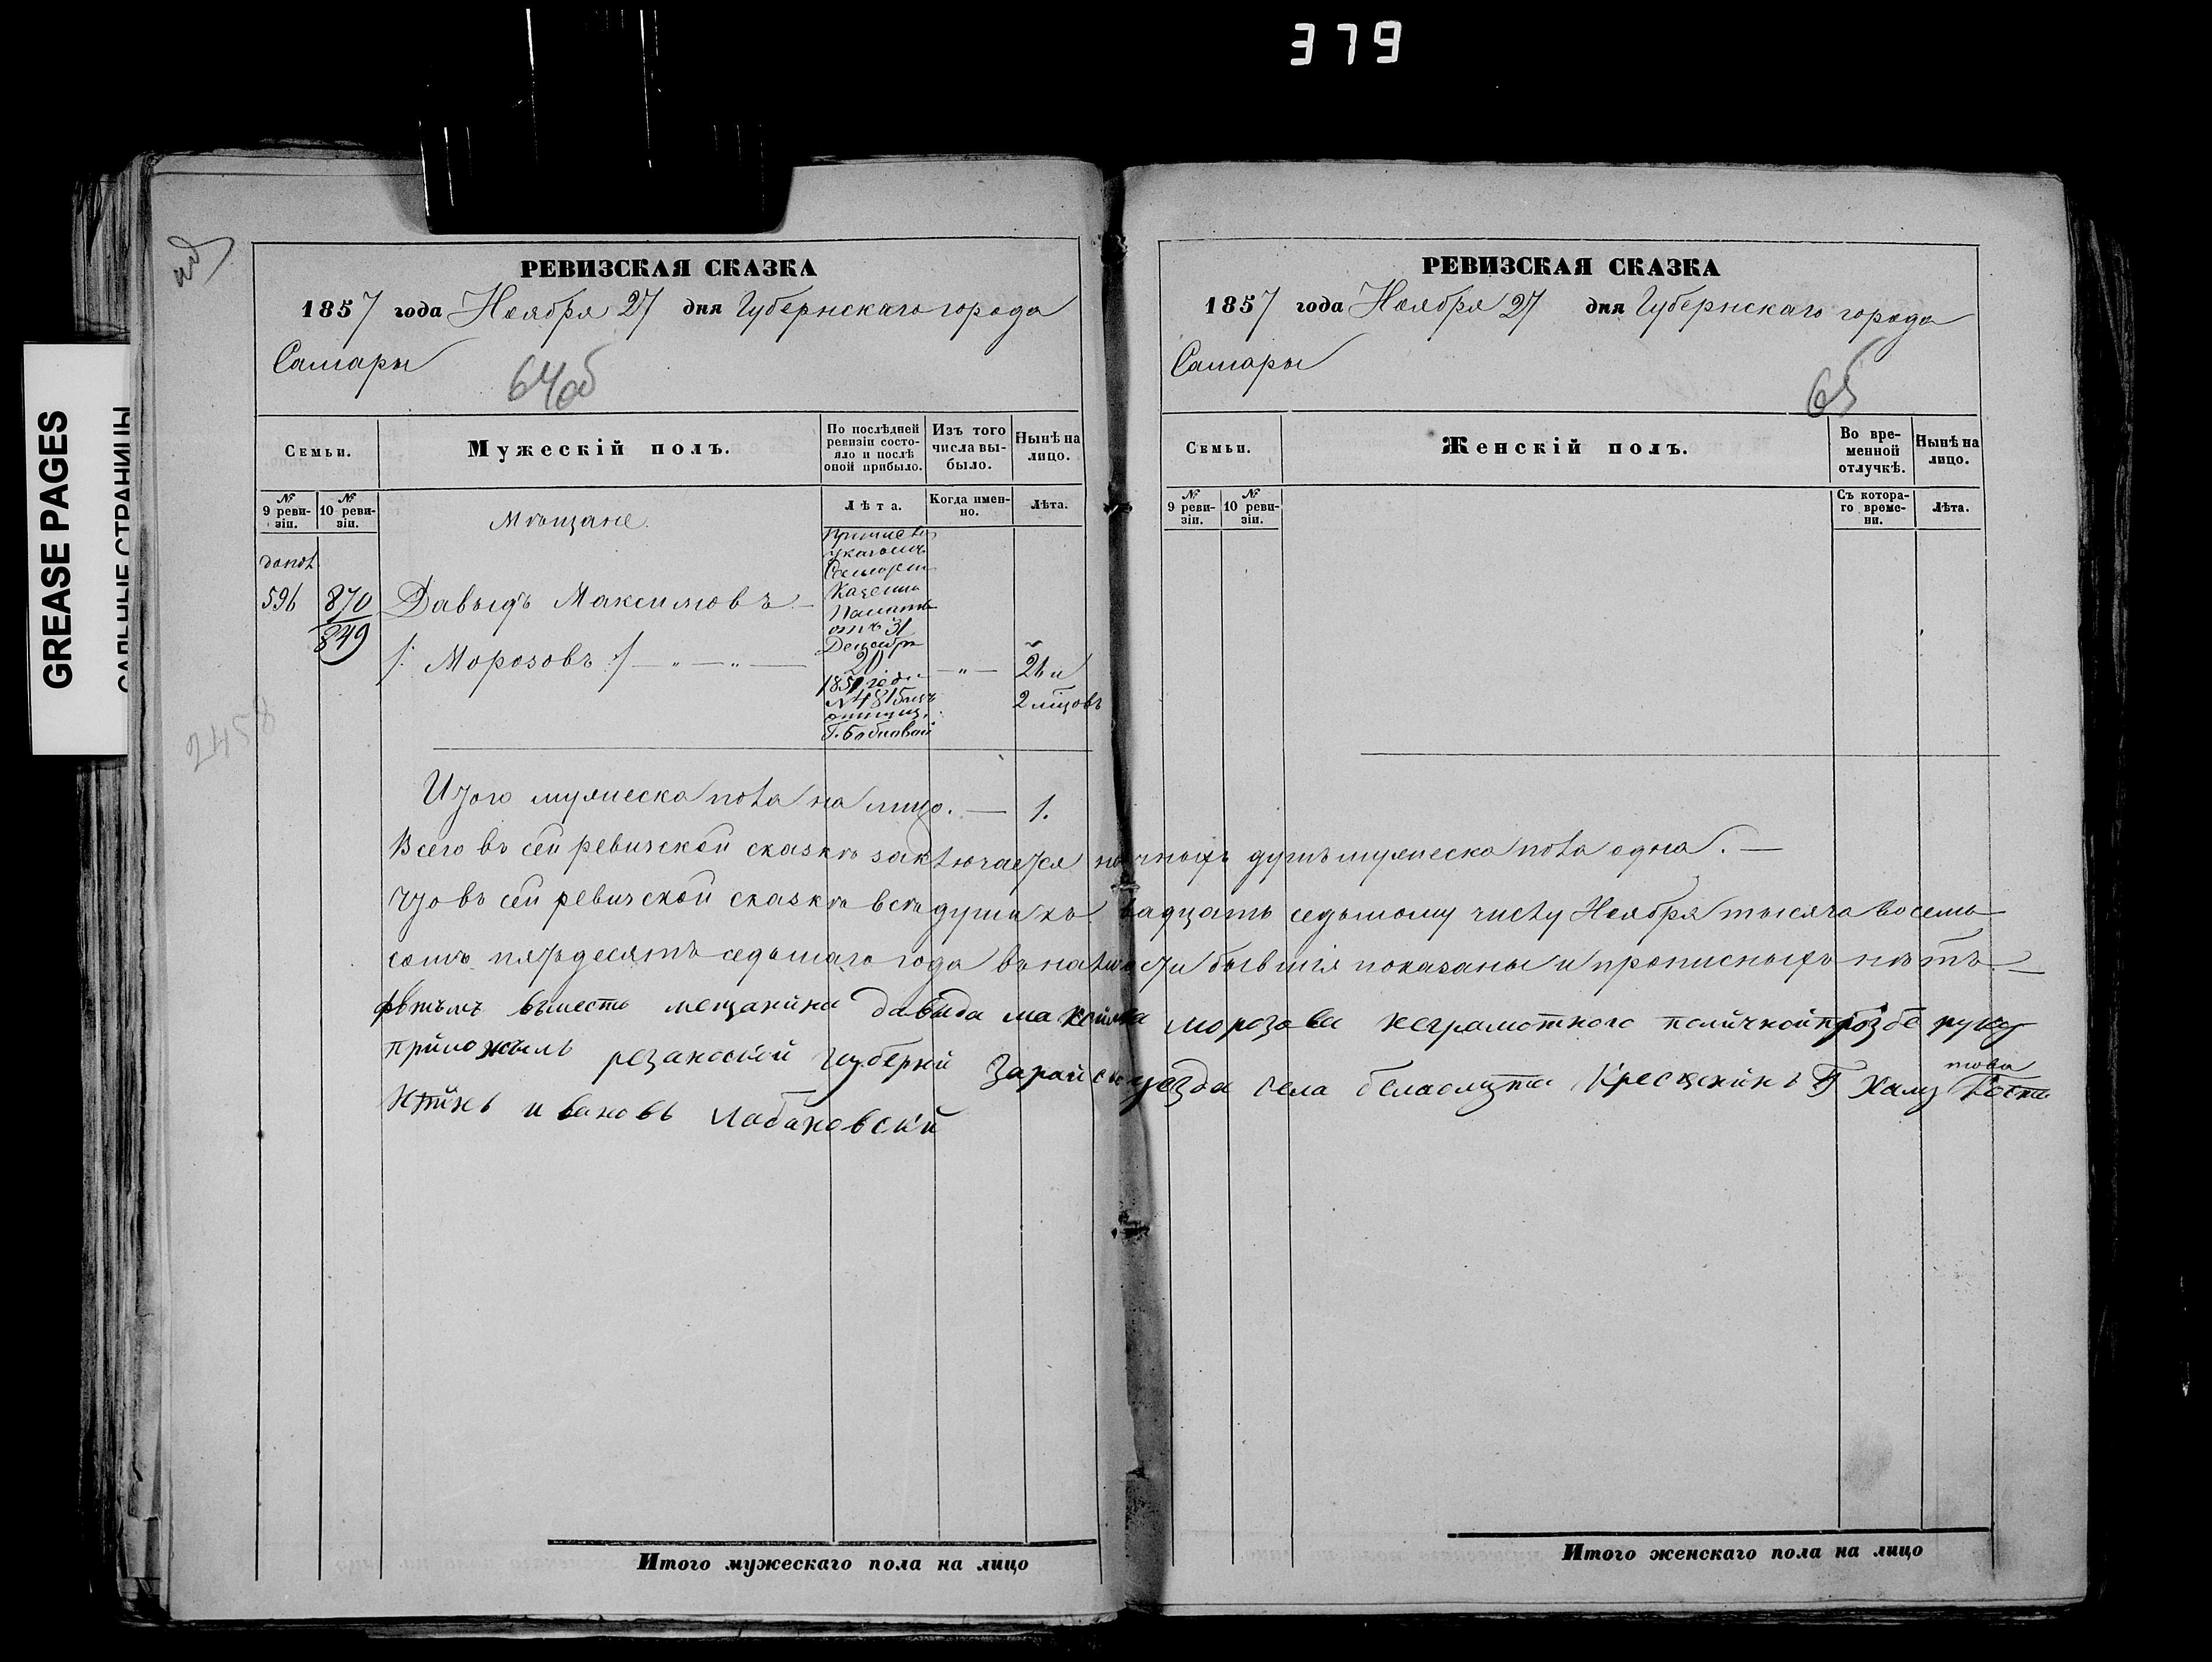 379
GREASE PAGES
САЛЬНЫЕ СТРАНИЦЫ
2458
РЕВИЗСКАЯ СКАЗКА
1857 года Ноября 27 дня Губернскаго города
Самары
64 об
Семьи.
Мужескій полъ.
По послѣдней ревизіи состояло и послѣ оной прибыло.
Изъ того числа выбыло.
Нынѣ на лицо.
№ 9 ревизіи.
№ 10 ревизіи.
Лѣта.
Когда именно.
Лѣта.
Мѣщане.
допол
596
870
849
Давыдъ Максимовъ
/: Морозовъ :/ — „ — „ —
указомъ
Казенн
Палаты
отъ 31
Декабря
20
1851 года
— „ —
26 и
2 мѣцовъ
Итого мужеска пола на лицо. — 1.
Всего въ сей ревизской сказкѣ заключается наличныхъ душъ мужеска пола одна. —
Что въ сей ревизской сказкѣ всѣ души къ двадцать седьмому числу Ноября тысяча восемь
сотъ пятьдесятъ седьмаго года въ наличности бывшія показаны и прописныхъ нѣтъ. —
вместо мещанина давыда максимва морозова неграмотного поличной прозбе руку
приложылъ резанской губерній Зарайск уезда села беласлута Крестенинъ
нтинъ ивановъ лобановскій
РЕВИЗСКАЯ СКАЗКА
1857 года Ноября 27 дня Губернскаго города
Самары
65
Семьи.
Женскій полъ.
Во временной отлучкѣ.
Нынѣ на лицо.
№ 9 ревизіи.
№ 10 ревизіи.
Съ котораго времени.
Лѣта.
Итого мужескаго пола на лицо
Итого женскаго пола на лицо